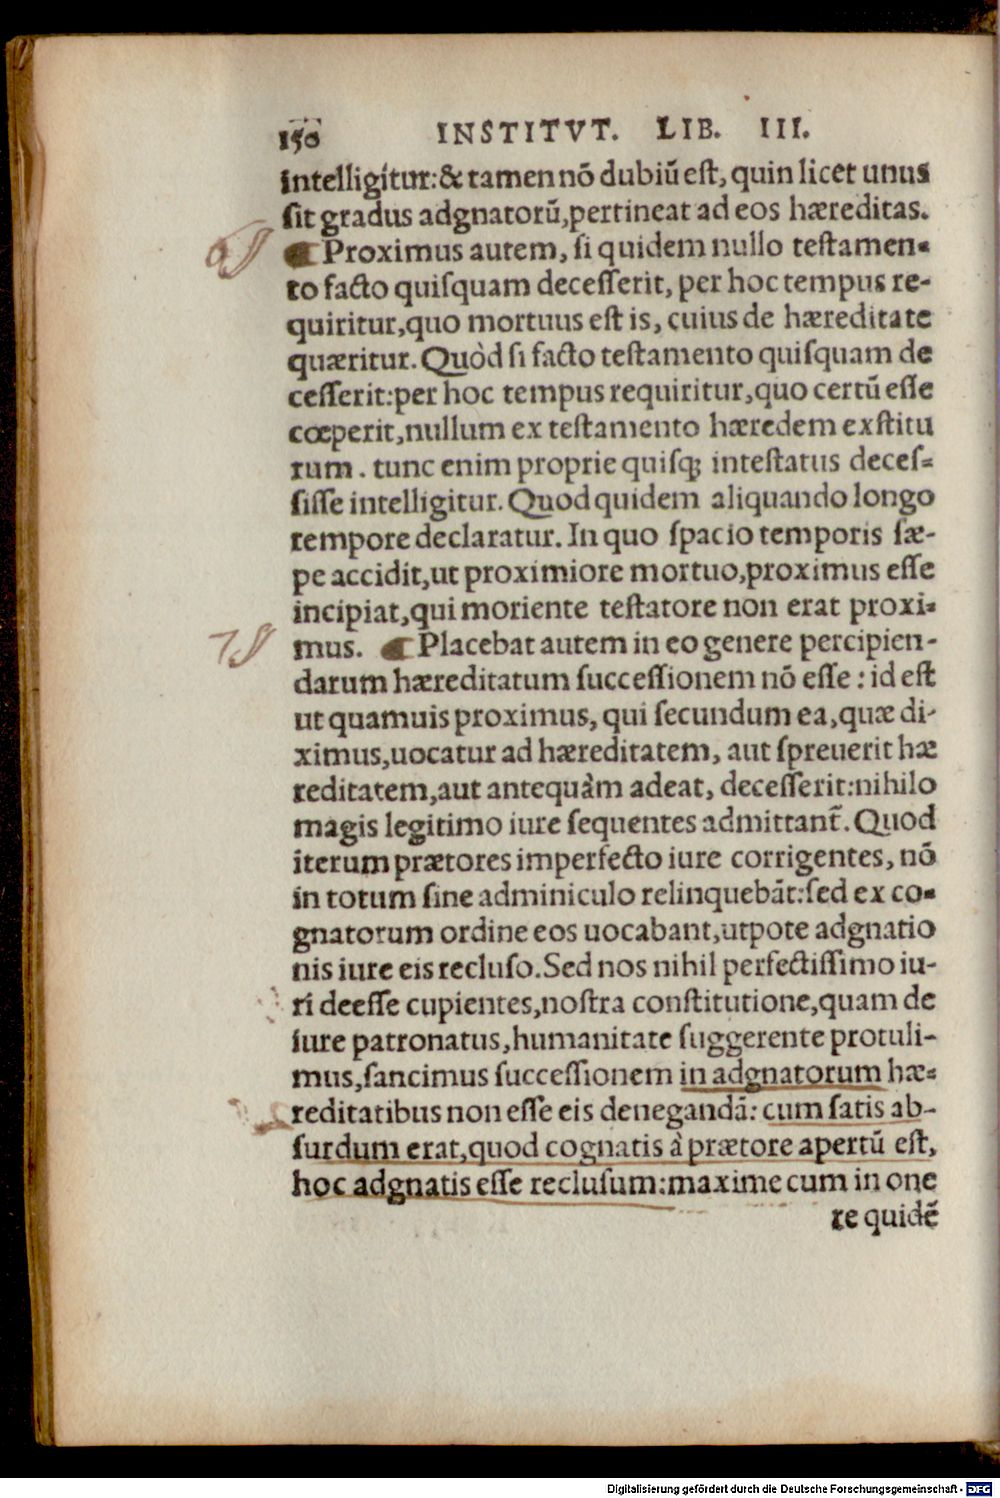 150 INSTITVT. LIB. III.
intelligitur:& tamen nō dubiū est, quin licet unus
sit gradus adgnatorū,pertineat ad eos hæreditas.
6§ ¶ Proximus autem, si quidem nullo testamen-
to facto quisquam decesserit, per hoc tempus re-
quiritur,quo mortuus est is, cuius de hæreditate
quæritur. Quòd si facto testamento quisquam de
cesserit:per hoc tempus requiritur,quo certū esse
cœperit,nullum ex testamento hæredem exstitu
rum. tunc enim proprie quisq; intestatus deces-
sisse intelligitur. Quod quidem aliquando longo
tempore declaratur. In quo spacio temporis sæ-
pe accidit,ut proximiore mortuo,proximus esse
incipiat,qui moriente testatore non erat proxi-
7§ mus. ¶ Placebat autem in eo genere percipien-
darum hæreditatum successionem nō esse : id est
ut quamuis proximus, qui secundum ea,quæ di-
ximus,uocatur ad hæreditatem, aut spreuerit hæ
reditatem,aut antequàm adeat, decesserit:nihilo
magis legitimo iure sequentes admittant̃. Quod
iterum prætores imperfecto iure corrigentes, nō
in totum sine adminiculo relinquebāt:sed ex co-
gnatorum ordine eos uocabant,utpote adgnatio
nis iure eis recluso. Sed nos nihil perfectissimo iu-
ri deesse cupientes,nostra constitutione,quam de
iure patronatus,humanitate suggerente protuli-
mus,sancimus successionem in adgnatorum hæ-
reditatibus non esse eis denegandā: cum satis ab-
surdum erat,quod cognatis à prætore apertū est,
hoc adgnatis esse reclusum:maxime cum in one
re quidē
Digitalisierung gefördert durch die Deutsche Forschungsgemeinschaft - DFG